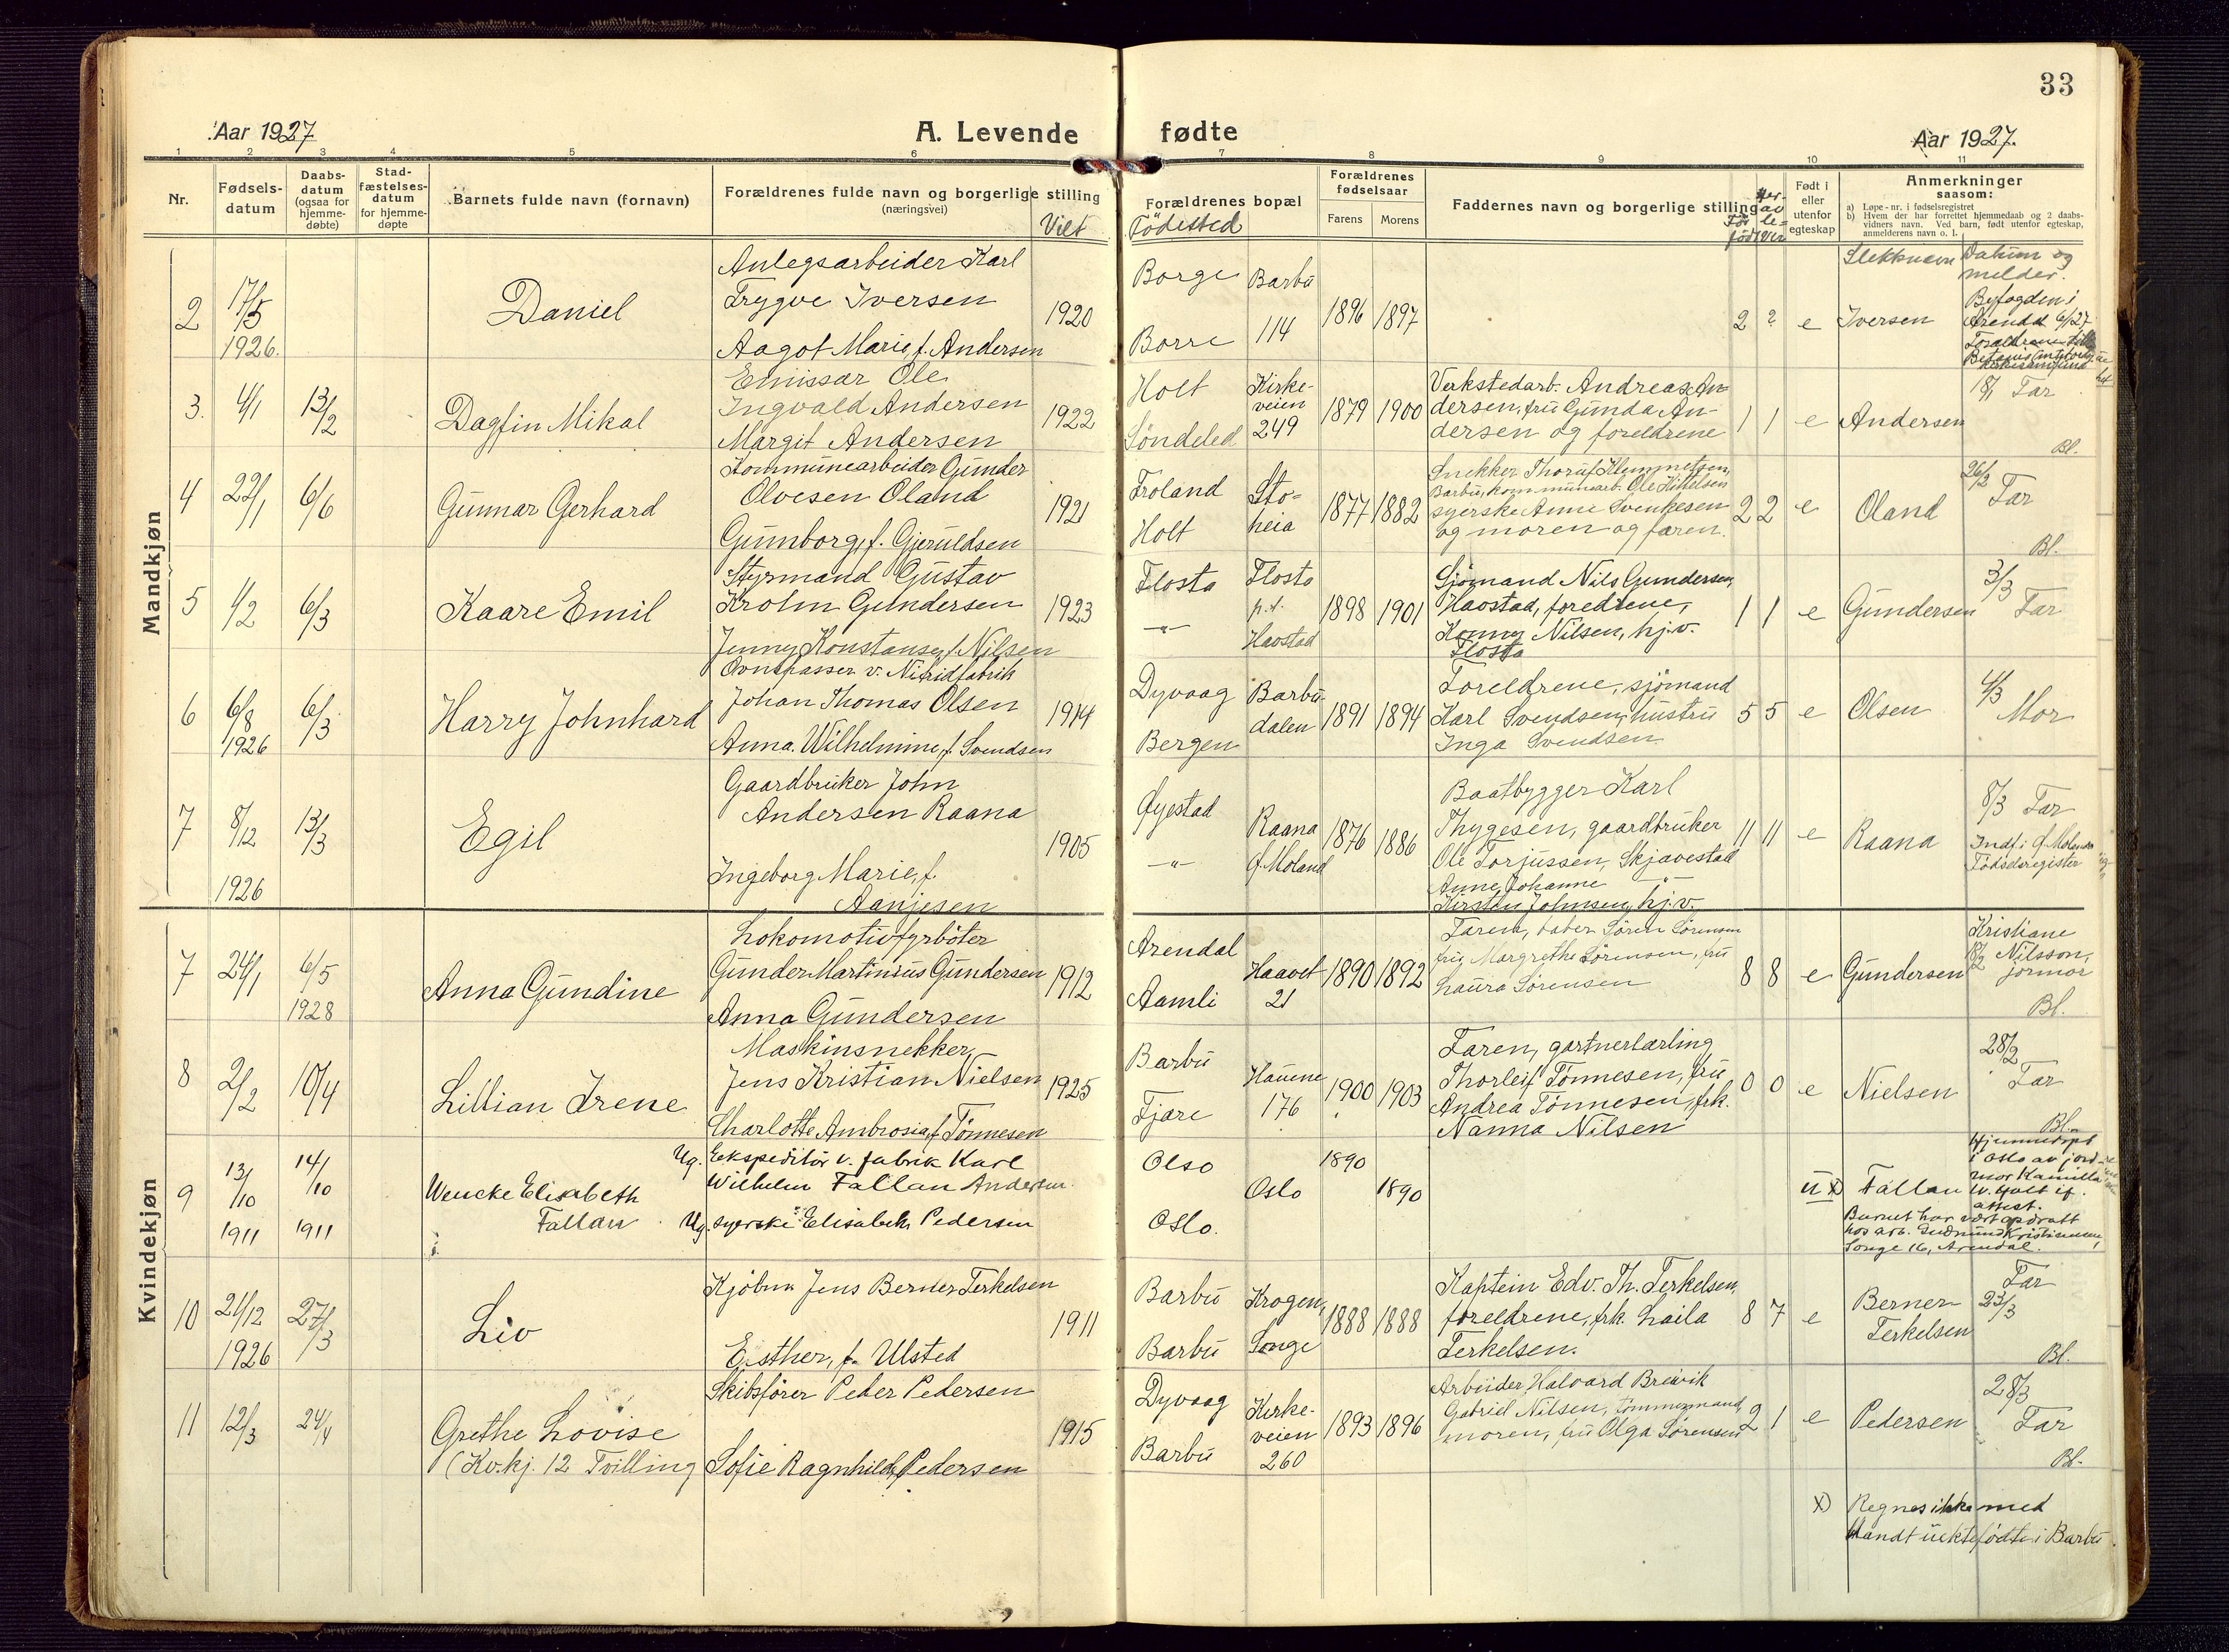 33
Aar 1927
A. Levende fødte
Aar 1927.
1 2 3 4 5 6 7 8 9 10 11
Nr.
Fødsels-
datum
Daabs-
datum
(ogsaa for
hjemme-
døbte)
Stad-
fæstelses-
datum
for hjemme-
døpte
Barnets fulde navn (fornavn)
Forældrenes fulde navn og borgerlige stilling
(næringsvei)
Viet
Forældrenes bopæl
Födested
Forældrenes
fødselsaar
Farens
Morens
Faddernes navn og borgerlige stilling
Før
født
Her-
av
le-
ver
Født i
eller
utenfor
egteskap
Anmerkninger
saasom:
a) Løpe-nr. i fødselsregistret
b) Hvem der har forrettet hjemmedaab og 2 daabs-
vidners navn. Ved barn, født utenfor egteskap,
anmelderens navn o. l.
Slekknavn
Datum og
melder.
Mandkjøn
2
17/5
1926.
Daniel
Anlegsarbeider Karl
Trygve Iversen
Aagot Marie, f. Andersen
1920
Borge
Borre
Barbu
114
1896
1897
2
?
e
Iversen
Byfogden i
Arendal 6/1 27
3.
4/1
13/2
Dagfin Mikal
Emissær Ole
Ingvald Andersen
Margit Andersen
1922
Holt
Söndeled
Kirke-
veien
249
1879
1900
Verkstedarb. Andreas An-
dersen, fru Gunda An-
dersen og foreldrene
1
1
e
Andersen
18/1 Far
Bl.
4
22/1
6/6
Gunnar Gerhard
Kommunearbeider Gunder
Olvesen Oland
Gunborg, f. Gjeruldsen
1921
Froland
Holt
Sto-
heia
1877
1882
Snekker Thoruf Klemmetsen,
Barbu, kommunearb. Ole Kittelsen
syerske Anne Svenkesen
og moren og faren.
2
2
e
Oland
26/2
Far
Bl.
5
1/2
6/3
Kaare Emil
Styrmand Gustav
Krolm Gundersen
Jenny Konstanse, f. Nilsen
1923
Flosta
-"-
Flosta
p.t.
Havstad
1898
1901
Sjömand Nils Gundersen,
Havstad, foreldrene,
Konny Nilsen, hj.v.
Flosta
1
1
e
Gundersen
3/3
Far
6
6/8
1926
6/3
Harry Johnhard
Ovnspasser v. Nitridfabrik
Johan Thomas Olsen
Anna Wilhelmine, f. Svendsen
1914
Dyvaag
Bergen
Barbu-
dalen
1891
1894
Foreldrene, sjömand
Karl Svendsen, hustru
Inga Svendsen
5
5
e
Olsen
4/3
Mor
7
8/12
1926
13/3
Egil
Gaardbruker John
Andersen Raana
Ingeborg Marie, f.
Aanjesen
1905
Øyestad
-"-
Raana
Ø. Moland
1876
1886
Baatbygger Karl
Thygesen, gaardbruker
Ole Torjussen, Skjavestad
Anne Johanne
Kirsten Johnsen, hj.v.
11
11
e
Raana
8/3 Far
Indf. i Ø. Molands
Fødselsregister
Kvindekjøn
7
24/1
6/5
1928
Anna Gundine
Lokomotivfyrböter
Gunder Martinius Gundersen
Anna Gundersen
1912
Arendal
Aamli
Haavet
21
1890
1892
Faren, baber Sören Sörensen
fru Margrethe Sörensen, fru
Laura Sörensen
8
8
e
Gundersen
Kristiane
18/2 Nilsson,
jormor
Bl.
8
2/2
10/4
Lillian Irene
Maskinsnekker
Jens Kristian Nielsen
Charlotte Ambrosia, f. Tönnesen
1925
Barbu
Fjære
Hauene
176
1900
1903
Faren, gartnerlærling
Thorleif Tönnesen, fru
Andrea Tönnesen, frk.
Nanna Nilsen
0
0
e
Nielsen
28/2
Far
Bl.
9
13/10
1911
14/10
1911
Wencke Elisabeth
Fallan
Ug. Ekspeditör v. fabrik Karl
Wilhelm Fallan Andersen.
Ug. syerske Elisabeth Pedersen
Olso
Oslo.
Oslo
1890
1890
u x)
Fallan
Hjemmedöpt
i Oslo av jord-
mor Kamilla
W. Holt if.
attest.
Barnet har vært opdratt
hos arb. Gudmund Kristiansen,
Songe 16, Arendal.
10
21/12
1926
27/3
Liv
Kjöbm. Jens Berner Terkelsen
Esther, f. Ulsted
1911
Barbu
Barbu
Krogen,
Songe
1888
1888
Kaptein Edv. Th. Terkelsen,
foreldrene, frk. Laila
Terkelsen.
8
7
e
Berner
Terkelsen
Far
23/3
Bl.
11
12/3
24/4
Grethe Lovise
(Kv.kj. 12 Tvilling
Skibsfører Peder Pedersen
Sofie Ragnhild Pedersen
1915
Dyvaag
Barbu
Kirke-
veien
260
1893
1896
Arbeider Halvard Breivik
Gabriel Nilsen, tömmermand,
moren, fru Olga Sörensen
2
1
e
Pedersen
28/3
Far
Bl.
x) Regnes ikke med
blandt uektefödte i Barbu.